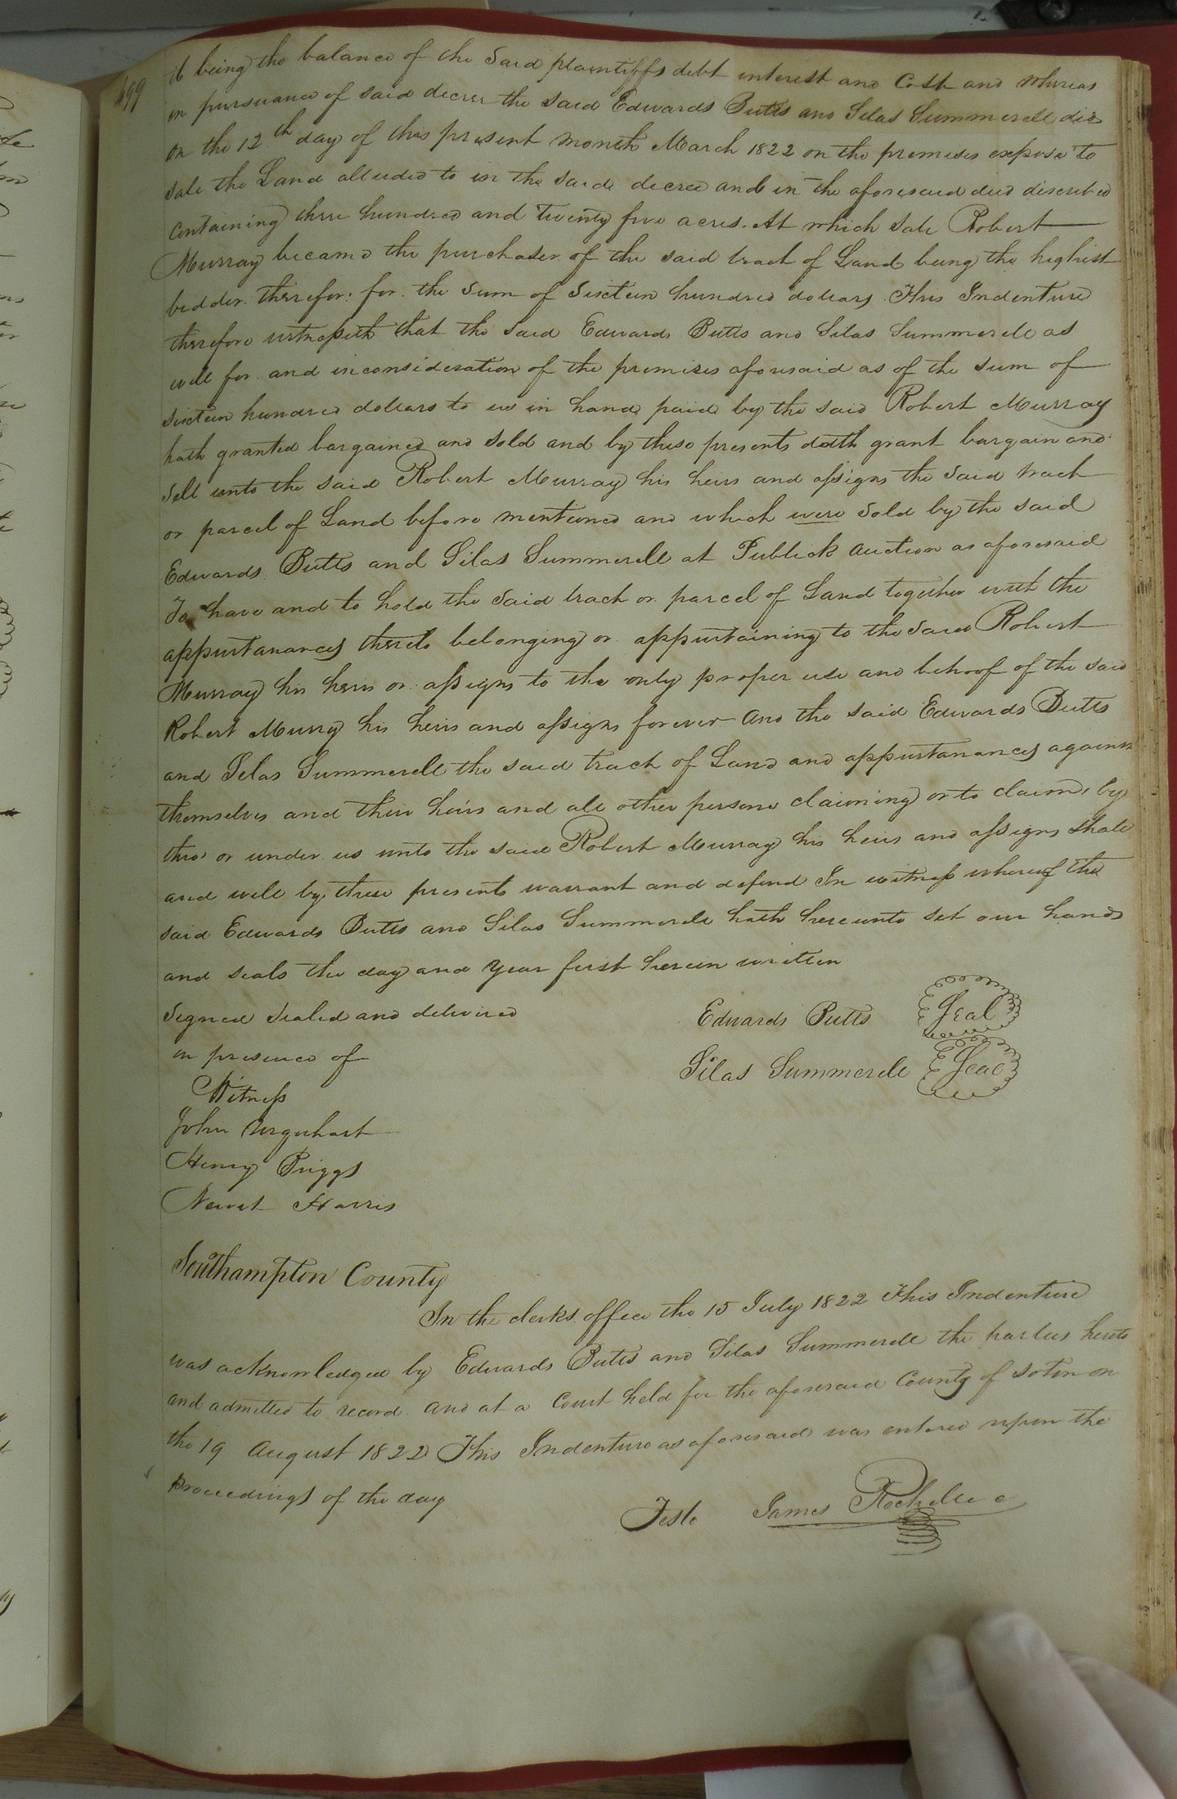 499
it being the balance of the said plaintiffs debt interest and Cost and whereas
in pursuance of said decree the said Edwards Butts and Silas Summerell did
on the 12th day of this present month March 1822 on the premises expose to
sale the Land alluded to in the said decree and in the aforesaid deed discribed
containing three hundred and Twenty five acres. At which sale Robert
Murray became the purchaser of the said tract of Land being the highest
bedder therefor: for the Sum of Sixteen hundred dollars This Indenture
therefore witnesseth that the said Edwards Butts and Silas Summerell as
well for and in consideration of the premises aforesaid as of the sum of
sixteen hundred dollars to us in hand paid by the said Robert Murray
hath granted bargained and sold and by these presents doth grant bargain and
sell unto the said Robert Murray his heirs and assigns the said tract
or parcel of Land before mentioned and which were sold by the said
Edwards Butts and Silas Summerell at Publick auction as aforesaid
To have and to hold the said tract or parcel of Land together with the
appurtanances thereto belonging or appurtaining to the said Robert
Murray his heirs or assigns to the only proper use and behoof of the said
Robert Murry his heirs and assigns forever and the said Edwards Butts
and Silas Summerell the said tract of Land and appurtanances against
themselves and their heirs and all other persons claiming or to claim by
thro' or under us unto the said Robert Murray his heirs and assigns shall
and will by these presents warrant and defend In witness whereof the
said Edwards Butts and Silas Summerell hath hereunto set our hands
and seals the day and year first herein written
Signed Sealed and delivered
in presence of
Edwards Butts Seal
Silas Summerell Seal
Witness
John Urquhart
Henry Briggs
Newit Harris
Southampton County
In the clerks office the 15 July 1822 This Indenture
was acknowledged by Edwards Butts and Silas Summerell the parties hereto
and admitted to record and at a Court held for the aforesaid County of Soton on
the 19 August 1822 This Indenture as aforesaid was entered upon the
proceedings of the day
Teste James Rochelle c